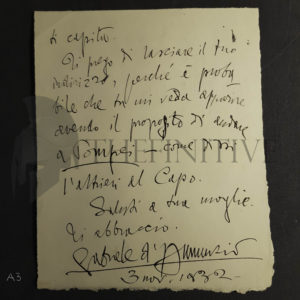 ti capita.
Ti prego di lasciare il tuo
indirizzo, perché è proba
bile che tu mi veda apparire
avendo il proposito di andare
a Pompei - come dissi
l'altrieri al Capo.
Saluti a tua moglie.
Ti abbraccio.
Gabriele d'Annunzio
3 nov. 1932 -
A3